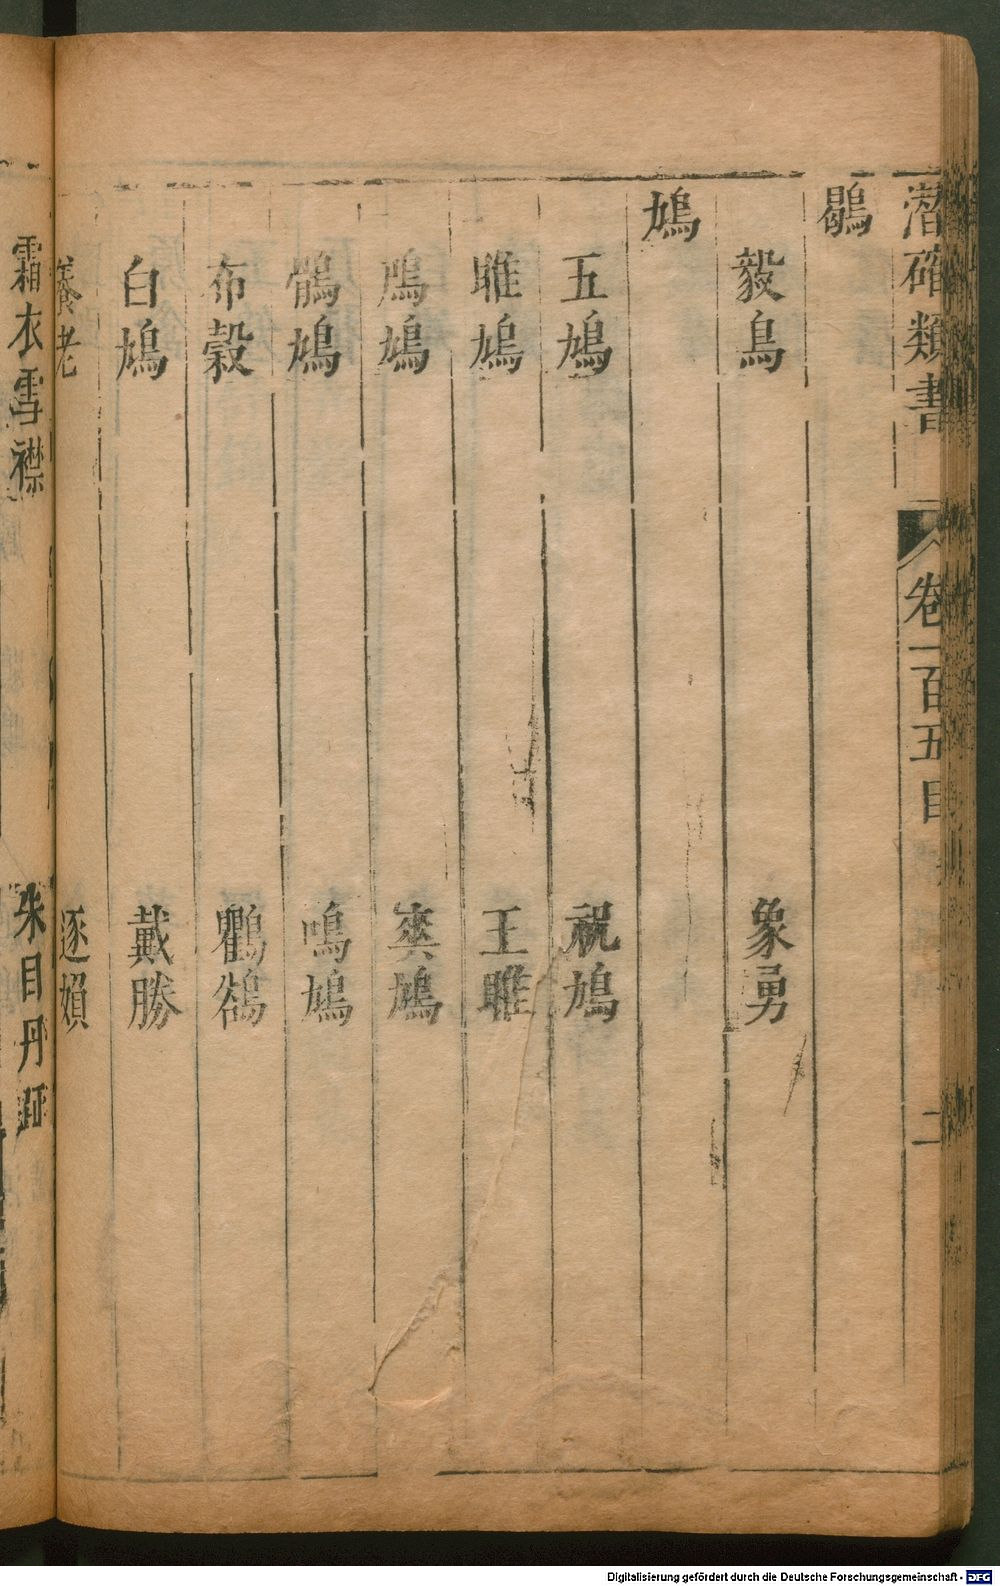 潛確類書 卷一百五目 二
鶡
毅鳥 象勇
鳩
五鳩 祝鳩
雎鳩 王雎
鳲鳩 爽鳩
鶻鳩 鳴鳩
布穀 鸜鵒
白鳩 戴勝
養老 逐婦
霜衣雪襟 朱目丹
Digitalisierung gefördert durch die Deutsche Forschungsgemeinschaft - DFG